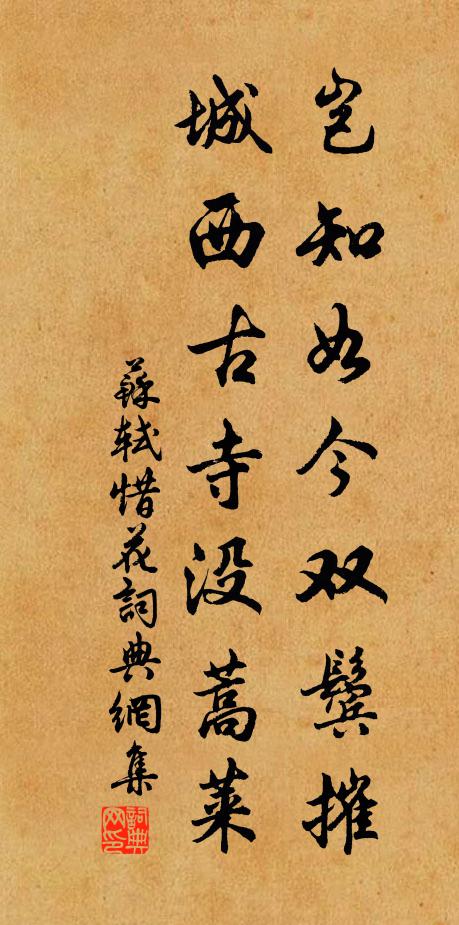 岂知如今双鬓摧
城西古寺没蒿莱
蘇轼惜花詞典網集
詞典网印